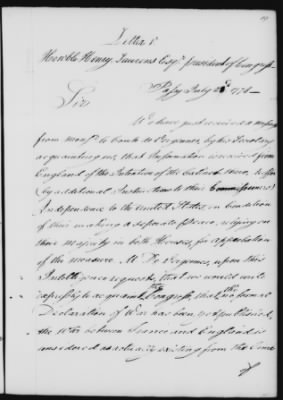 Letter
Honorble Henry Laurens Esqr. president of Congress
Passy July 1778 —
Sir
We have just received a message
from Monsr. Le Comte De Vergennes, by his Secretary
acquainting us, that Information is received from
England of the Intention of the Cabinet there, to offer
(by additional Instructions to their Commissioners)
Independence to the United States, on Condition
of their making a seperate Peace, relying on
their Majority in both Houses, for approbation
of the measure. M. De Vergennes, upon this
Intelligence requests, that we would write
expressly to acquaint the Congress, that tho no formal
Declaration of War has been yet published,
the War between France and England is
considered as actually existing from the time